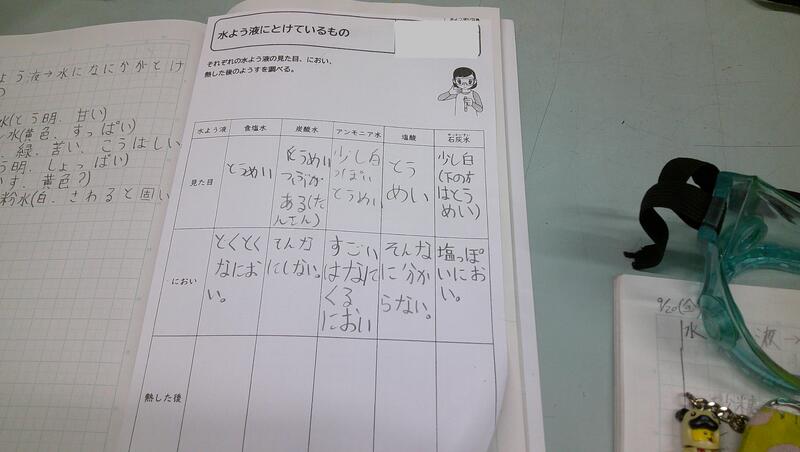 水よう液にとけているもの
それぞれの水よう液の見た目、におい、
熱した後のようすを調べる。
水よう液 食塩水 炭酸水 アンモニア水 塩酸 石灰水
見た目
とうめい
とうめい
つぶが
ある(た
んさん)
少し白
っぽい
とうめい
とう
めい
少し白
(下の方
はとう
めい)
におい
とくとく
なにお
い。
そんな
にしない。
すごい
はなにく
くる
におい
そんな
に分か
らない。
塩っぽ
いにお
い。
熱した後
よう液→水になにかがとけ
水(とう明、甘い)
水(黄色、すっぱい)
緑、苦い、こうばしい
う明、しょっぱい)
す、黄色?)
粉水(白、さわると固い
9/20(金)
水 液→